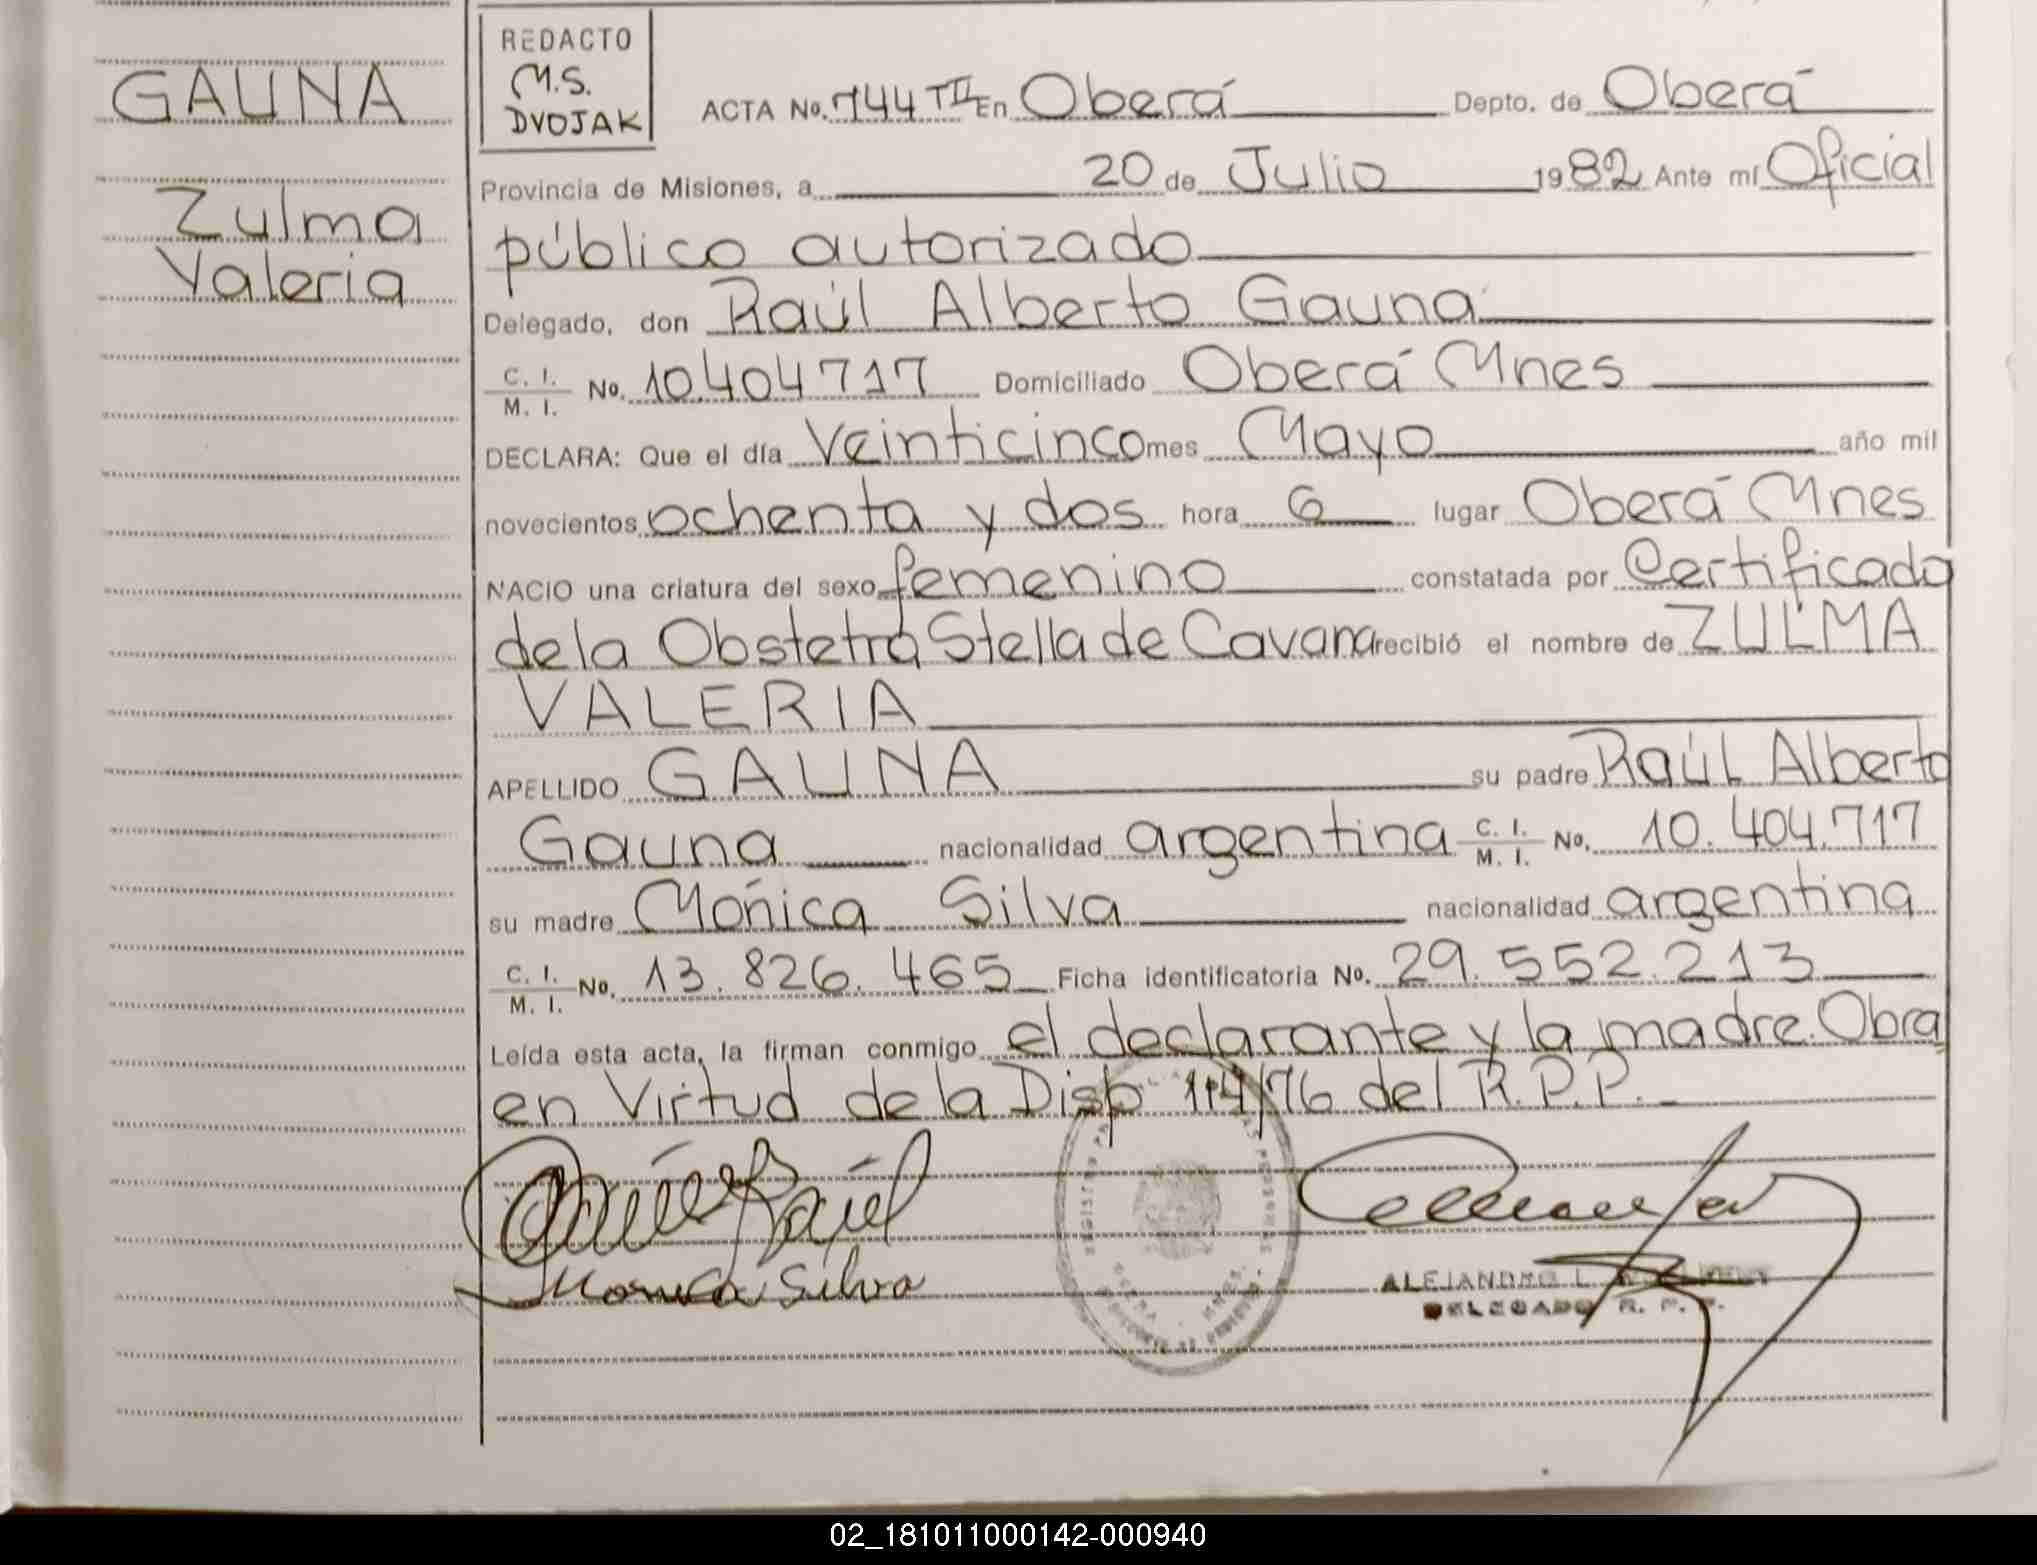 GAUNA
Zulma
Valeria
REDACTO
M.S.
DVOJAK
ACTA No. 744 TII En Oberá Depto. de Oberá
Provincia de Misiones, a 20 de Julio 1982 Ante mí Oficial
público autorizado
Delegado, don Raúl Alberto Gauna
C. I. M. I. No. 10.404717 Domiciliado Oberá Mnes
DECLARA: Que el día Veinticinco mes Mayo año mil
novecientos ochenta y dos hora 6 lugar Oberá Mnes
NACIO una criatura del sexo femenino constatada por Certificado
de la Obstetra Stella de Cavana recibió el nombre de ZULMA
VALERIA
APELLIDO GAUNA su padre Raúl Alberto
Gauna nacionalidad argentina C. I. M. I. No. 10.404.717
su madre Mónica Silva nacionalidad argentina
C. I. M. I. No. 13.826.465 Ficha identificatoria No. 29.552.213
Leída esta acta, la firman conmigo el declarante y la madre. Obra
en Virtud de la Disp 114/76 del R.P.P.
Raúl
Monica Silva
ALEJANDRO L.
DELEGADO R. P. P.
02_181011000142-000940